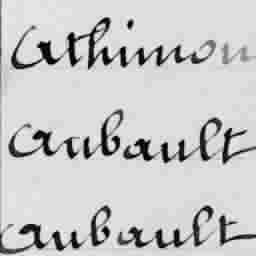 Athimon
Aubault
Aubault